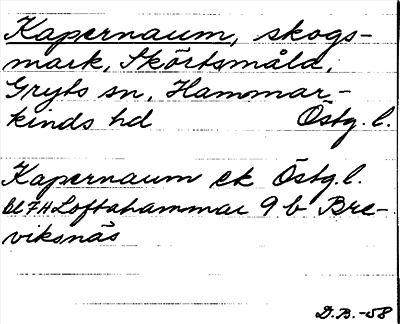 Kapernaum, skogs-
mark, Skörtsmåla,
Gryts sn, Hammar-
kinds hd Östg. l.
Kapernaum ek Östg. l.
Bl 7H Loftahammar 9 b Bre-
viksnäs
D.B.-58